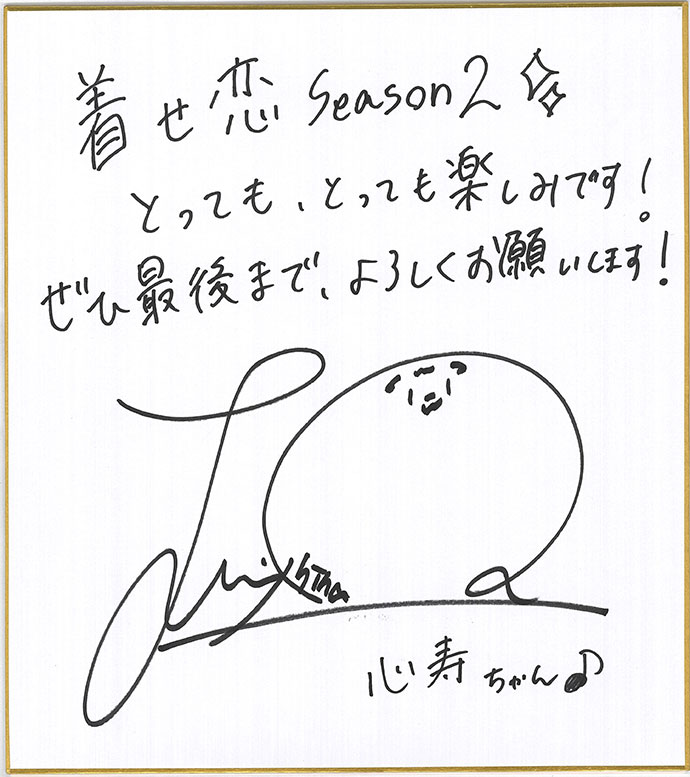 着せ恋 Season2
とっても、とっても楽しみです!
ぜひ最後まで、よろしくお願いします!
心寿ちゃん♪